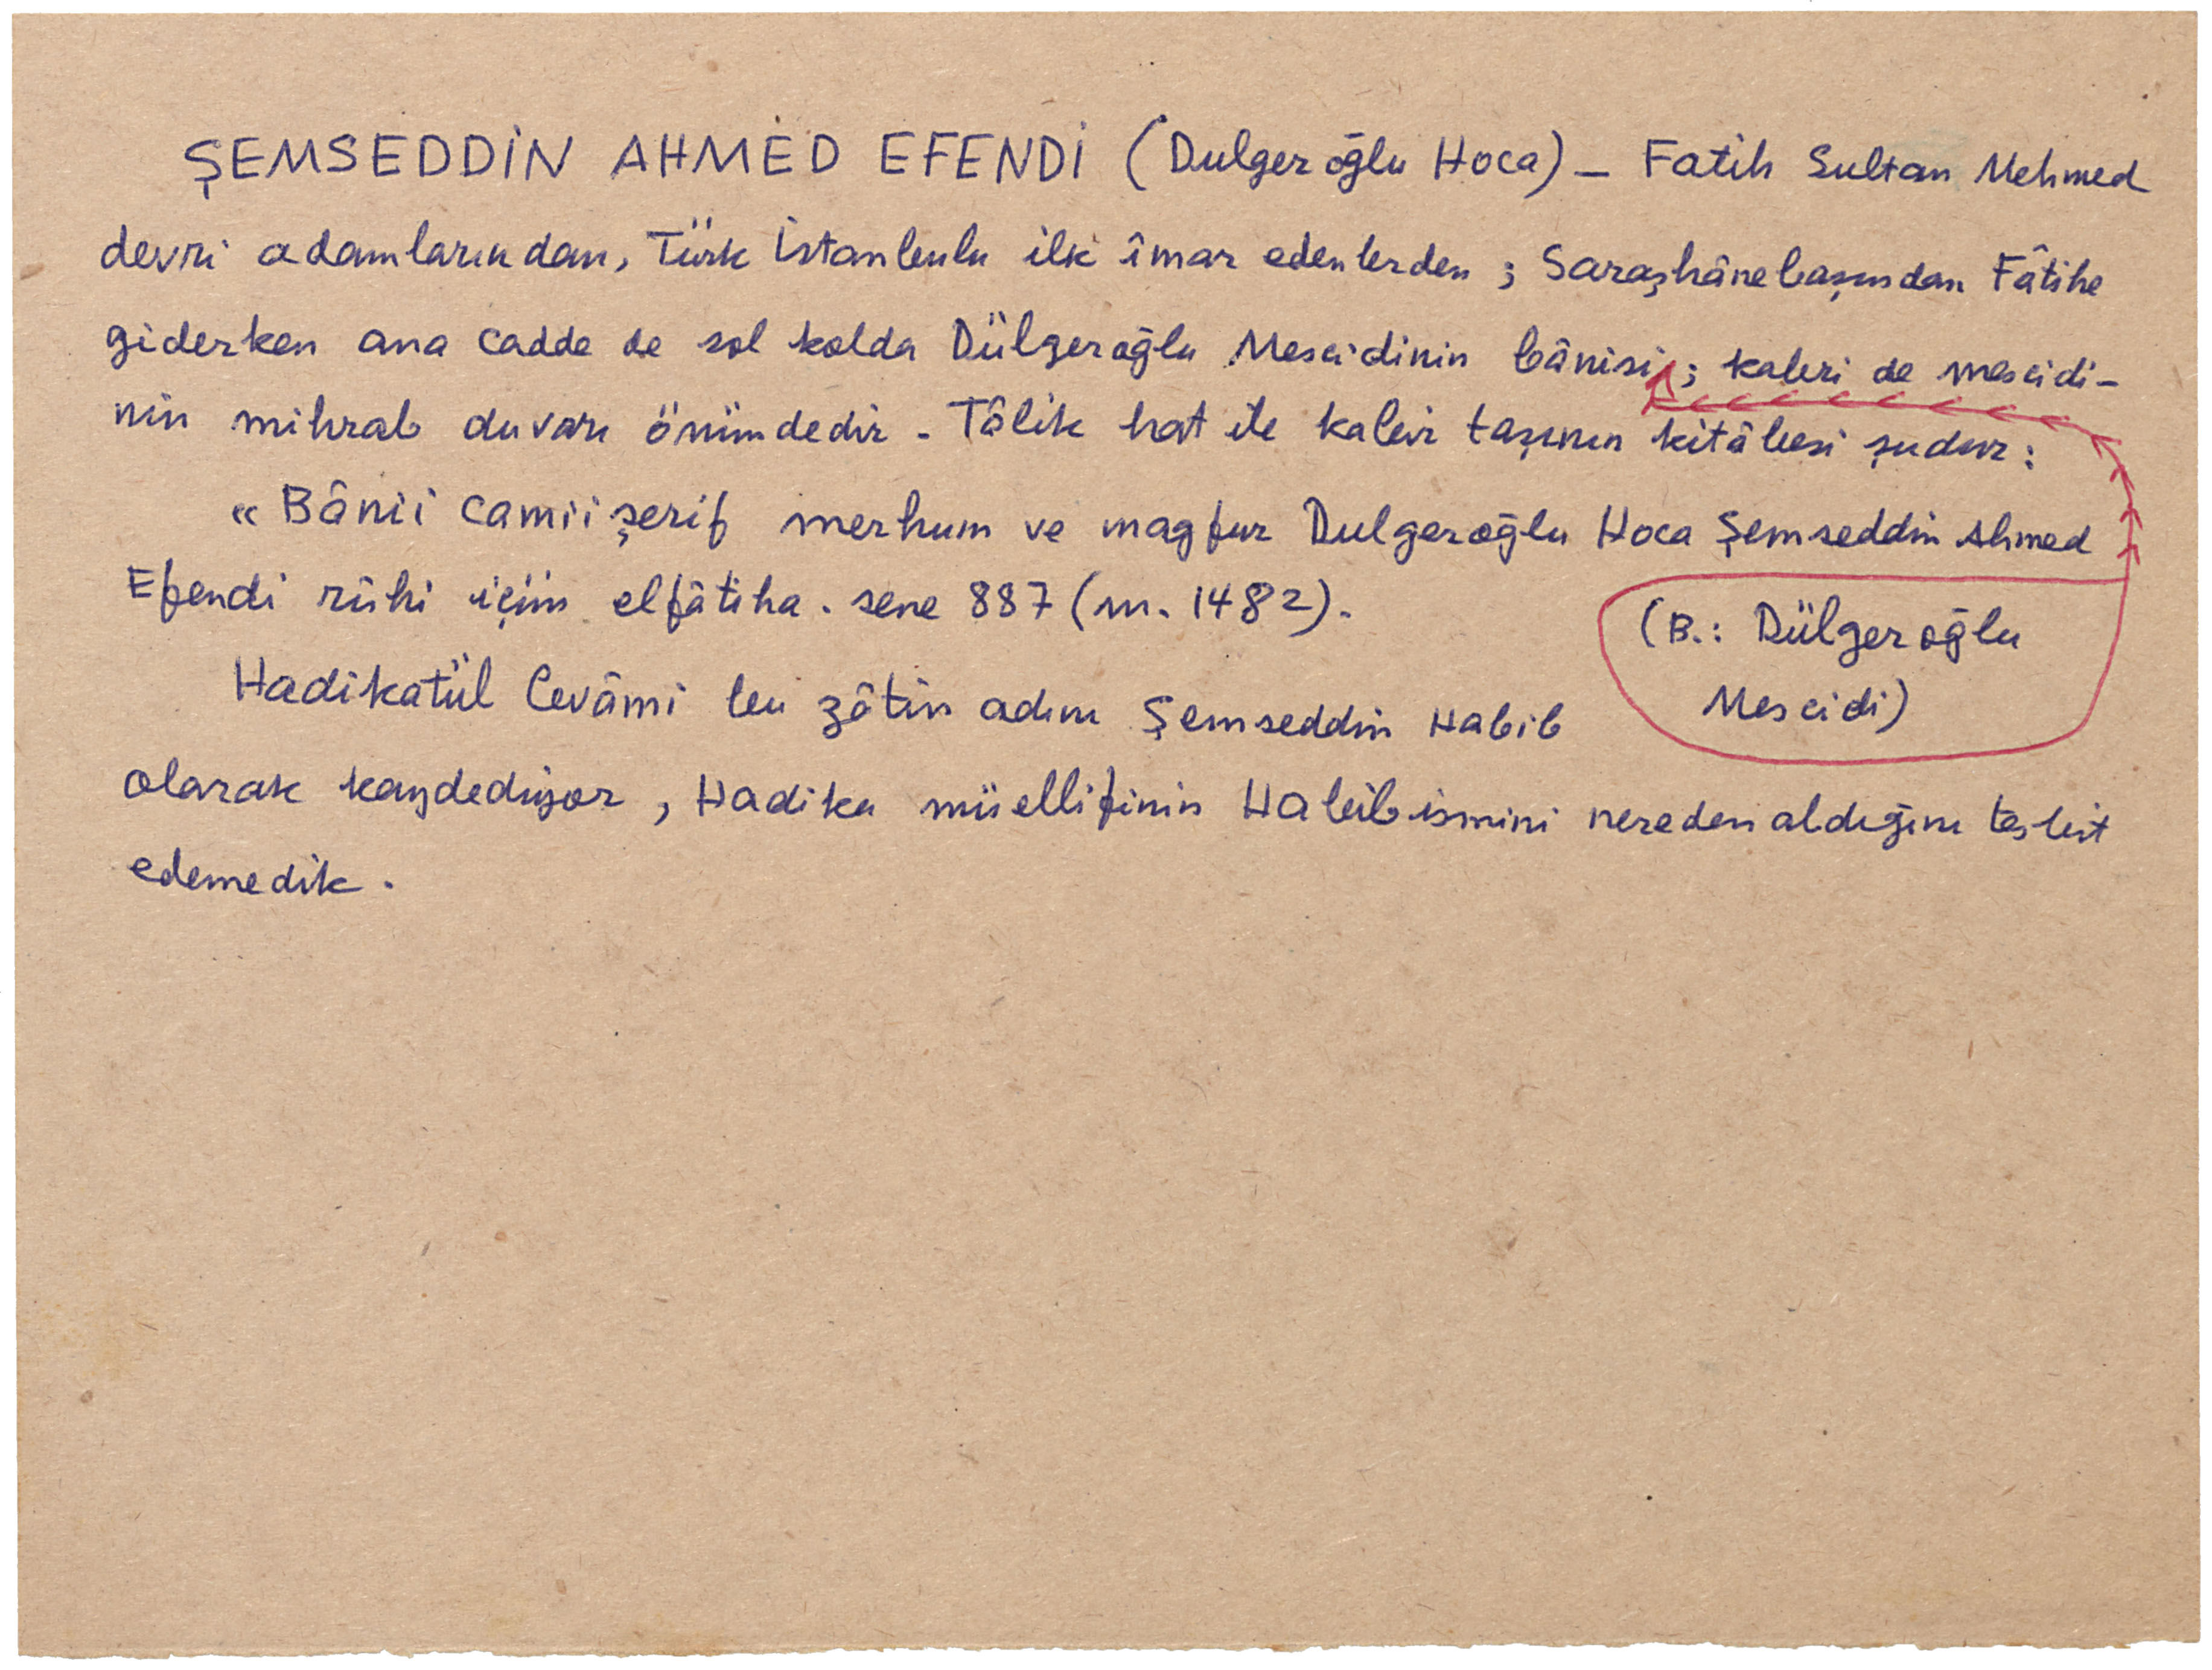 ŞEMSEDDİN AHMED EFENDİ (Dulgeroğlu Hoca) — Fatih Sultan Mehmed
devri adamlarından, Türk İstanbulu ilk îmar edenlerden ; Saraşhânebaşından Fâtihe
giderken ana cadde de sol kolda Dülgeroğlu Mescidinin bânisi ; kabri de mescidi-
nin mihrab duvarı önündedir. Tâlik hat ile kabir taşının kitâbesi şudur :
« Bânii camii şerif merhum ve magfur Dulgeroğlu Hoca Şemseddin Ahmed
Efendi rûhi için elfâtiha. sene 887 (m. 1482).
(B.: Dülgeroğlu
Mescidi)
Hadikatül Cevâmi bu zâtin adını Şemseddin Habib
olarak kaydediyor, Hadika müellifinin Habib ismini nereden aldığını tesbit
edemedik.